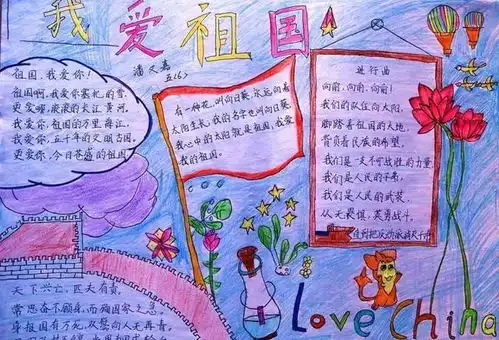 我爱祖国
潘文嘉
五(6)
祖国,我爱你!
祖国啊,我爱你裹扎的雪,
更爱哪滚滚的长江黄河,
我爱你,祖国的万里海江,
我爱你,五千年的文明古国。
更爱你,今日苍盛的祖国
有一种花,叫向日葵,永远向着
太阳生长,我的名字也叫向日葵,
我心中的太阳就是祖国,我爱
我的祖国。
进行曲
向前,向前,向前!
我们的队伍向太阳,
脚踏着祖国的大地,
背负着民族的希望,
我们是一支不可战胜的力量
我们是人民的子弟,
我们是人民的武装,
从无畏惧,英勇战斗,
直到把反动派消灭干净
天下兴亡,匹夫有责,
常思奋不顾身,而殉国家之急。
寄报国有万死,从鬓向人无再青。
Love China